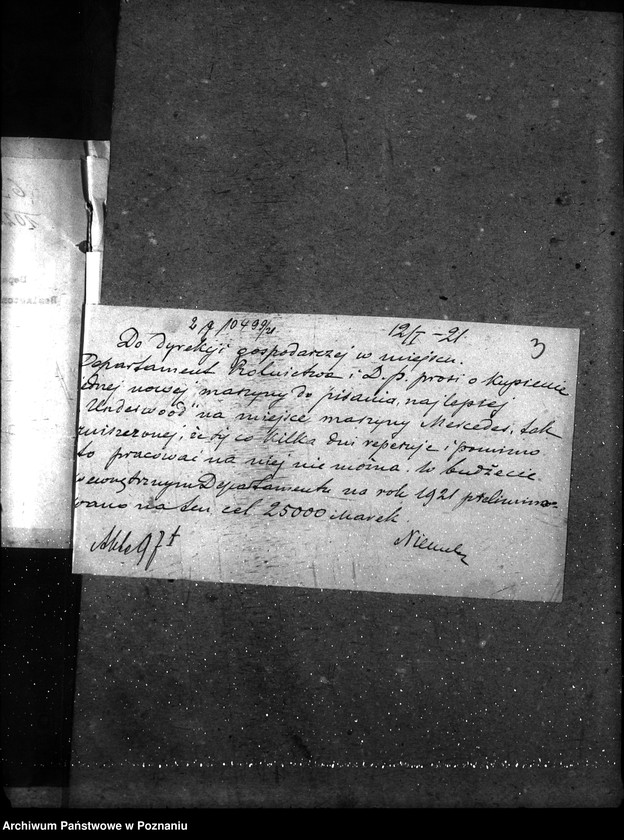 12/I – 21.
3
Do dyrekcji gospodarczej w miejscu.
Departament Rolnictwa i D. P. prosi o kupienie
ednej nowej maszyny do pisania, najlepszej
"Underwood" na miejsce maszyny Mercedes, tak
zniszczonej, że się co kilka dni reperuje i pomimo
to pracować na niej nie można. W budżecie
wewnętrznym Departamentu na rok 1921 prelimino=
wano na ten cel 25000 Marek
Archiwum Państwowe w Poznaniu